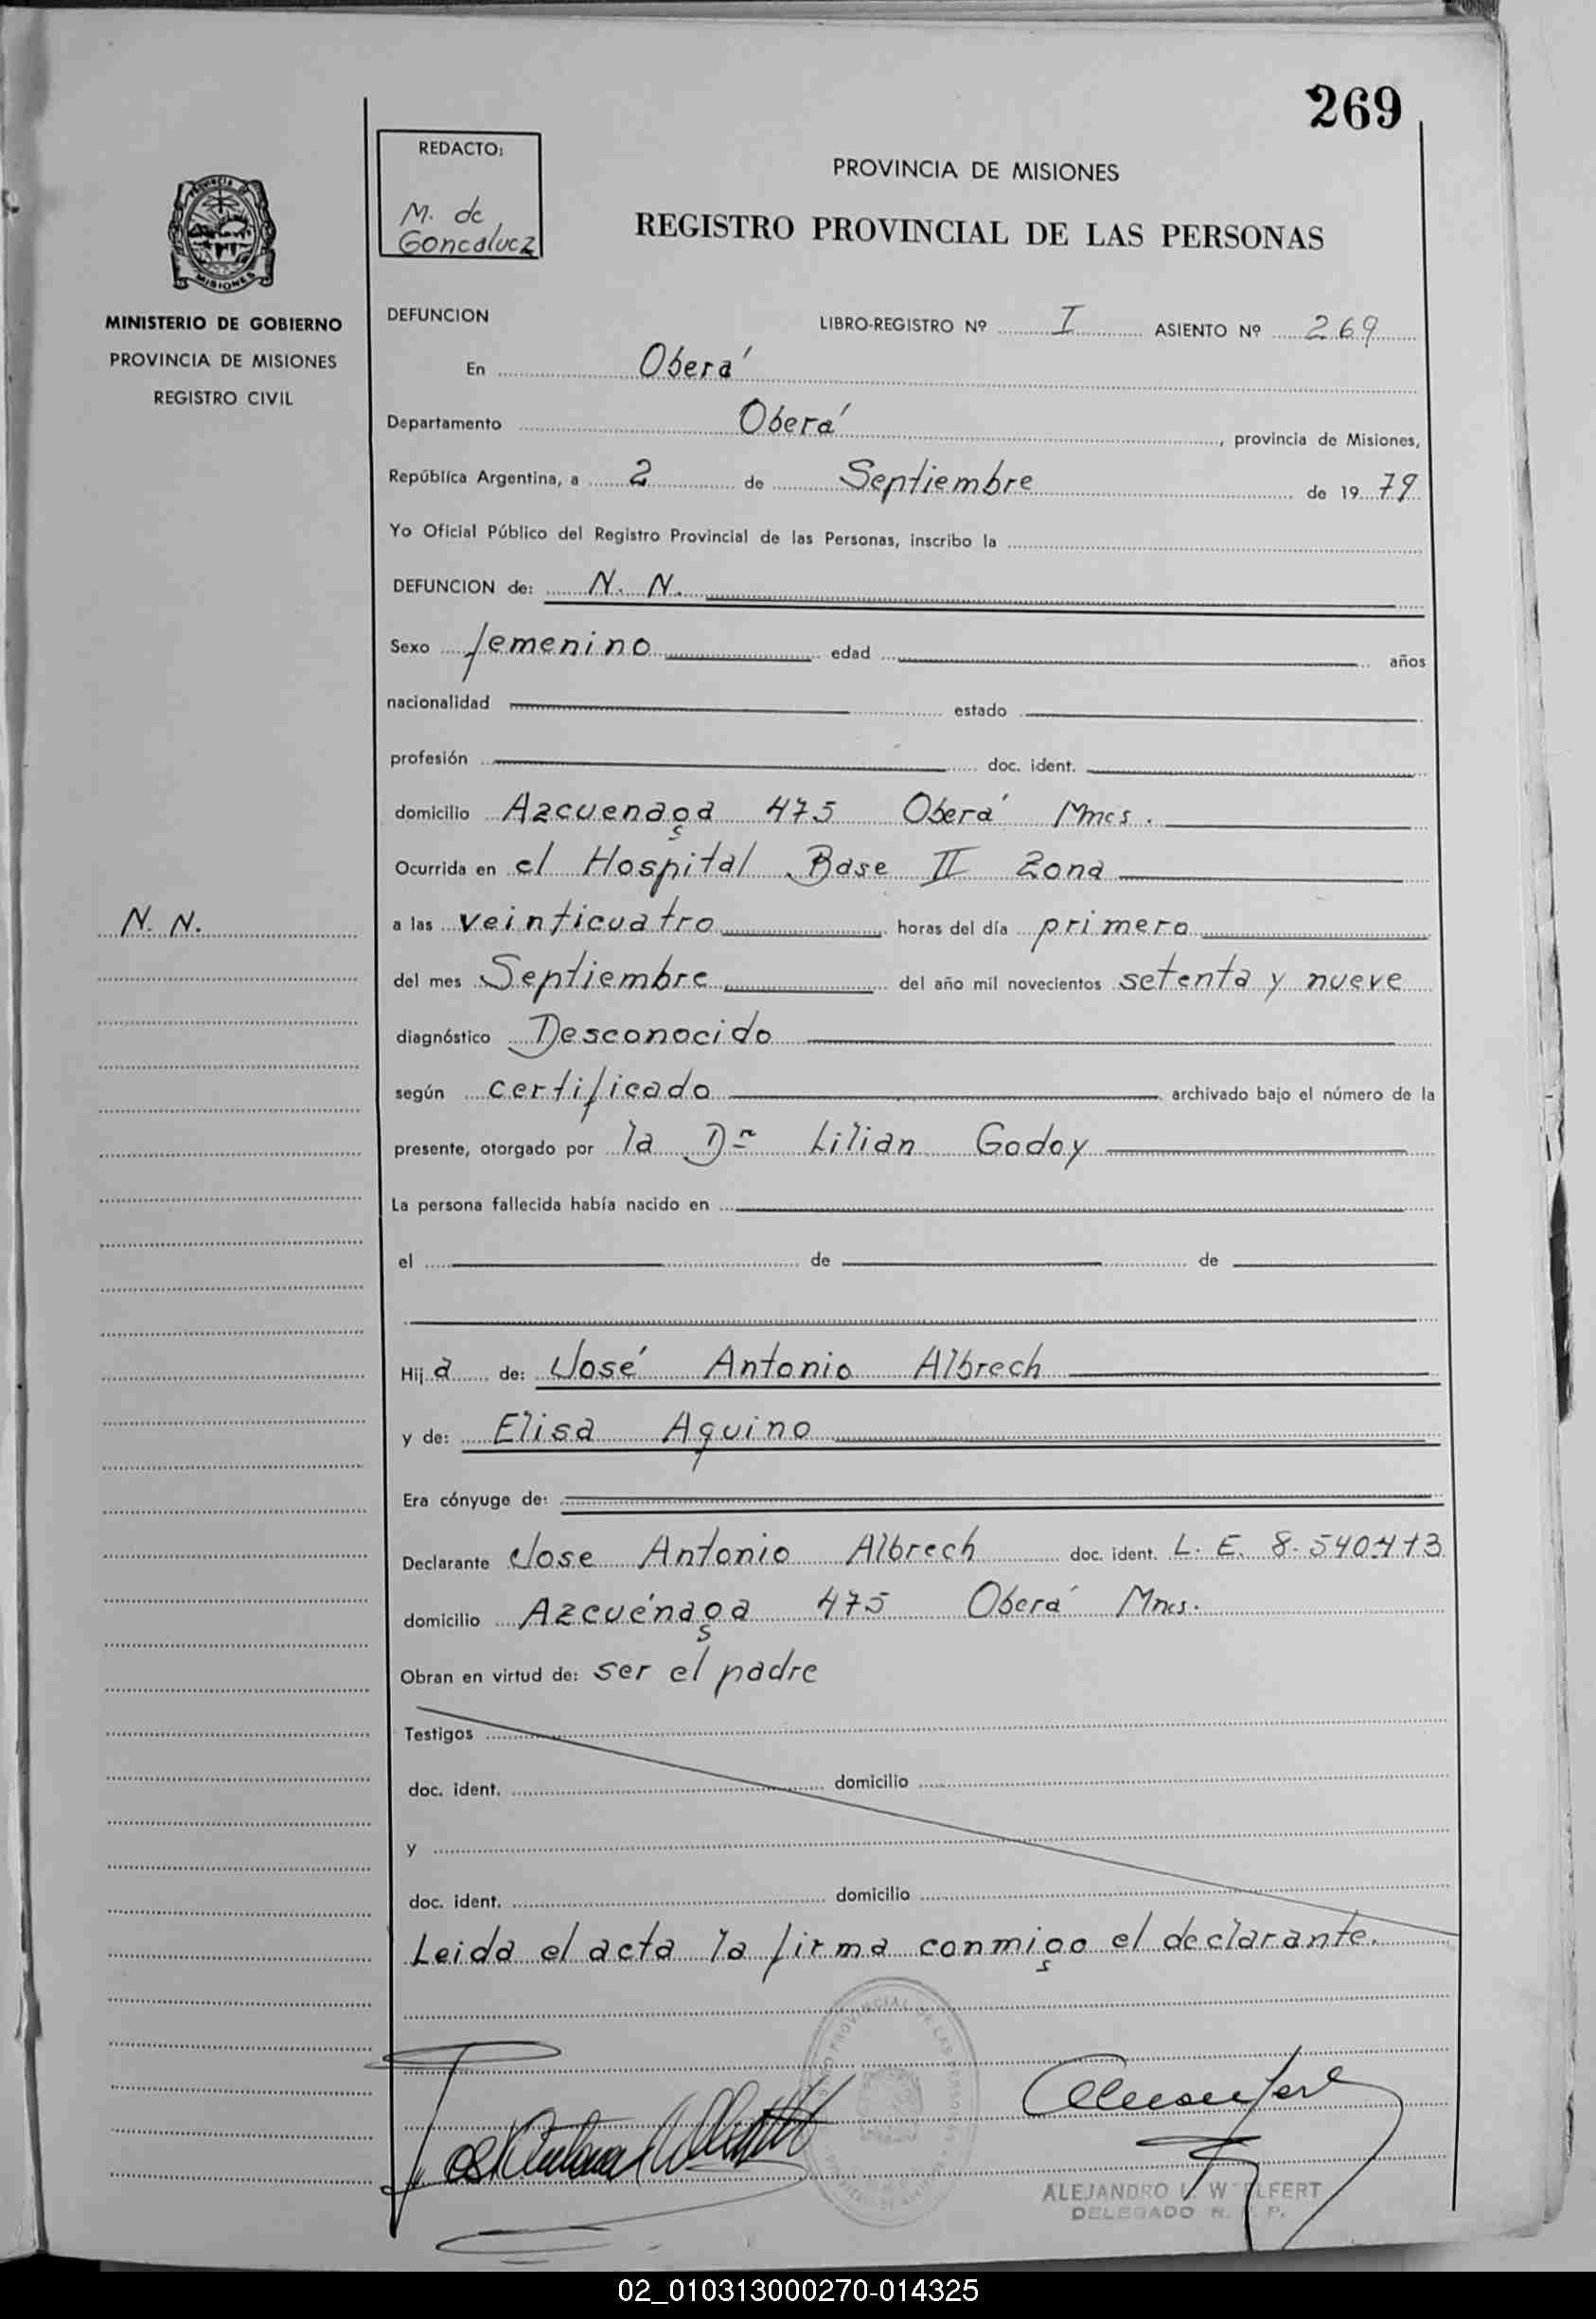 269
REDACTO:
M. de
Goncalvez
PROVINCIA DE MISIONES
REGISTRO PROVINCIAL DE LAS PERSONAS
MISIONES
MINISTERIO DE GOBIERNO
PROVINCIA DE MISIONES
REGISTRO CIVIL
DEFUNCION LIBRO-REGISTRO Nº I ASIENTO Nº 269
En Oberá
Departamento Oberá, provincia de Misiones,
República Argentina, a 2 de Septiembre de 1979
Yo Oficial Público del Registro Provincial de las Personas, inscribo la
DEFUNCION de: N. N.
Sexo femenino edad años
nacionalidad estado
profesión doc. ident.
domicilio Azcuenaga 475 Oberá Mnes.
Ocurrida en el Hospital Base II Zona
N. N.
a las veinticuatro horas del día primero
del mes Septiembre del año mil novecientos setenta y nueve
diagnóstico Desconocido
según certificado archivado bajo el número de la
presente, otorgado por la Dra Lilian Godoy
La persona fallecida había nacido en
el de de
Hija de: José Antonio Albrech
y de: Elisa Aquino
Era cónyuge de:
Declarante Jose Antonio Albrech doc. ident. L. E. 8.540.413
domicilio Azcuénaga 475 Oberá Mnes.
Obran en virtud de: ser el padre
Testigos
doc. ident. domicilio
y
doc. ident. domicilio
Leida el acta la firma conmigo el declarante.
ALEJANDRO
DELEGADO
02_010313000270-014325